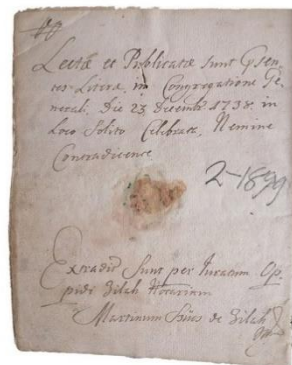 Lectæ et Publicatæ Sunt Pſen-
tes Literæ, in Congregatione Ge-
nerali, Die 23 Decembr 1738 in
Loco Solito Celebrata, Nemine
Contradicente
2-1899
Extradit Sunt per Iuratum Op
pidi Zilah Notarium
Martinum de Zilah